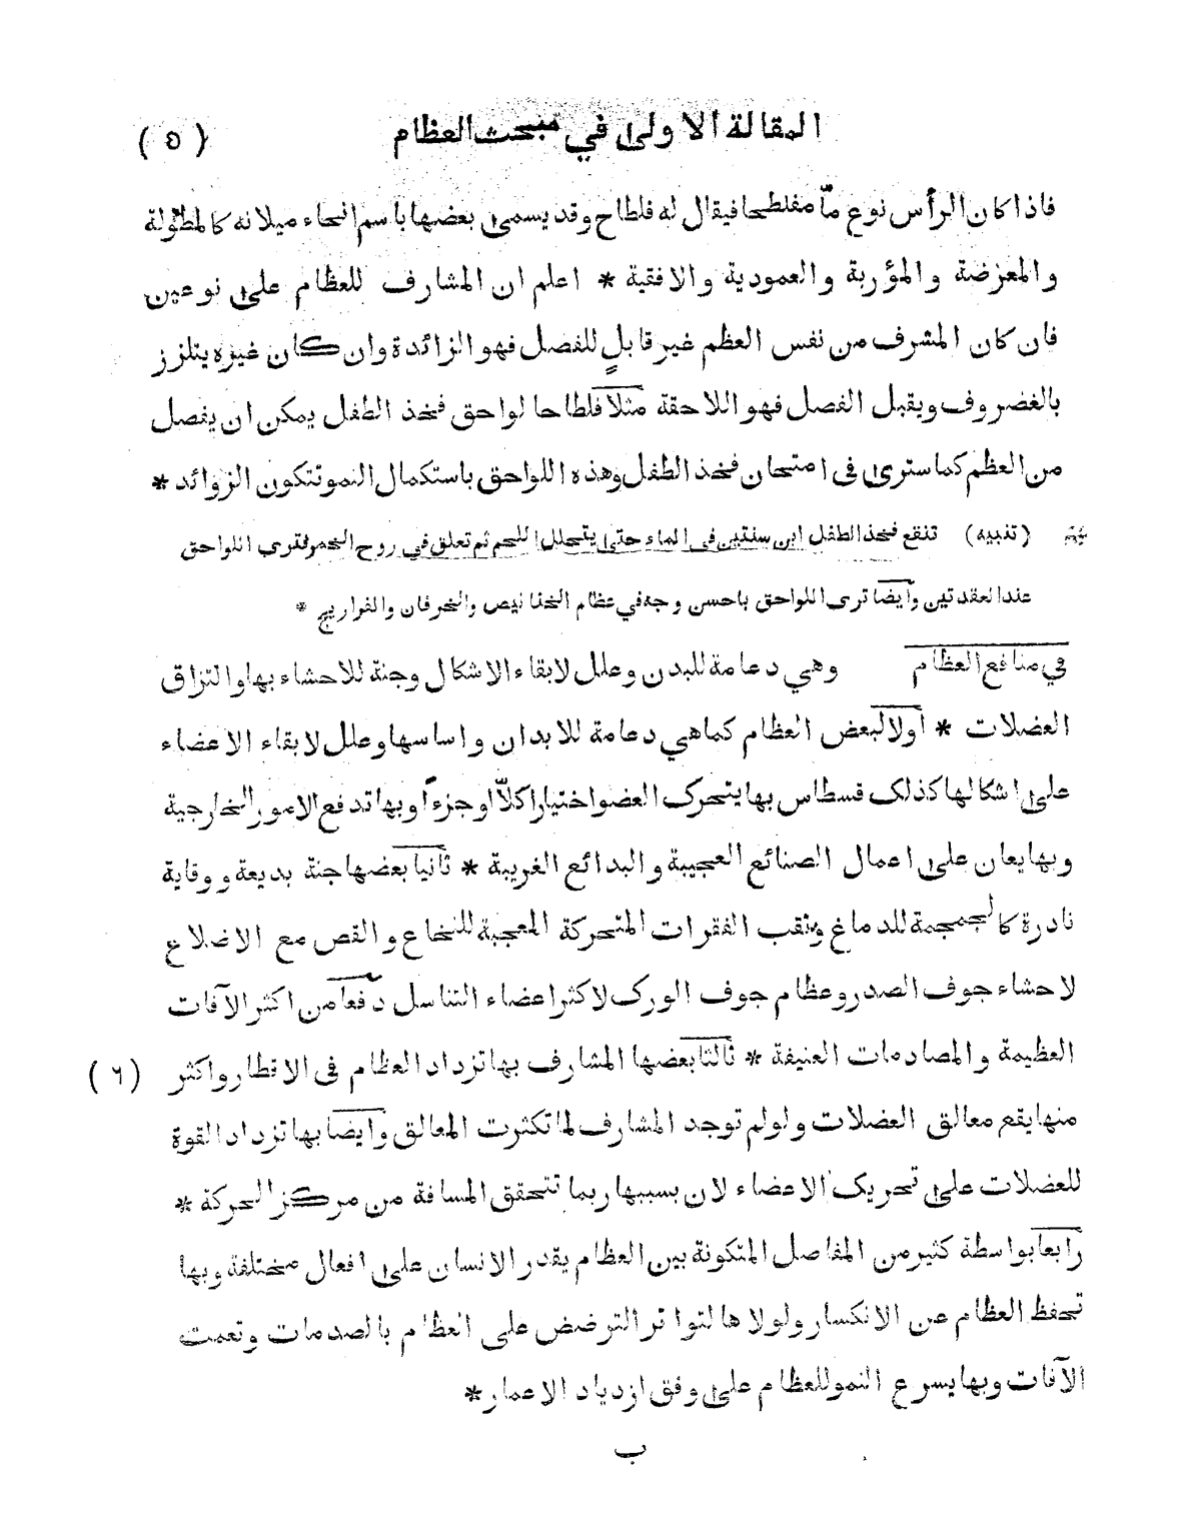 المقالة الاولى في مبحث العظام (٥)
فاذا كان الرأس نوع ماّ مفلطحا فيقال له فلطاح وقد يسمى بعضها باسم انحاء ميلانه كالمطوّلة
والمعرّضة والمؤربة والعمودية والافقية * اعلم ان المشارف للعظام على نوعين
فان كان المشرف من نفس العظم غير قابلٍ للفصل فهو الزائدة وان كان غيره يتلزز
بالغضروف ويقبل الفصل فهو اللاحقة مثلا فلطاحا لواحق فخذ الطفل يمكن ان يفصل
من العظم كما سترى فى امتحان فخذ الطفل وهذه اللواحق باستكمال النمو تتكون الزوائد *
(تنبيه) تنقع فخذ الطفل ابن سنتين فى الماء حتى يتحلل اللحم ثم تعلق في روح الخمر فترى اللواحق
عند العقدتين وأيضا ترى اللواحق باحسن وجه في عظام الخنانيص والخرفان والفراريج *
في منافع العظام وهي دعامة للبدن وعلل لابقاء الاشكال وجنة للاحشاء بها والتزاق
العضلات * أولا لبعض العظام كما هي دعامة للابدان واساسها وعلل لابقاء الاعضاء
على اشكالها كذلك قسطاس بها يتحرك العضو اختيارا كلاّ او جزءاً وبها تدفع الامور الخارجية
وبها يعان على اعمال الصنائع العجيبة والبدائع الغريبة * ثانيا بعضها جنة بديعة ووقاية
نادرة كالجمجمة للدماغ وثقب الفقرات المتحركة المعجبة للنخاع والقص مع الاضلاع
لاحشاء جوف الصدر وعظام جوف الورك لاكثر اعضاء التناسل دفعا من اكثر الآفات
العظيمة والمصادمات العنيفة * ثالثا بعضها المشارف بها تزداد العظام فى الاقطار واكثر (٦)
منها يقع معالق العضلات ولو لم توجد المشارف لما تكثرت المعالق وأيضا بها تزداد القوة
للعضلات على تحريك الاعضاء لان بسببها ربما تتحقق المسافة من مركز الحركة *
رابعا بواسطة كثير من المفاصل المتكونة بين العظام يقدر الانسان على افعال مختلفة وبها
تحفظ العظام عن الانكسار ولولاها لتواتر الترضض على العظام بالصدمات وتعمت
الآفات وبها يسرع النمو للعظام على وفق ازدياد الاعمار *
ب